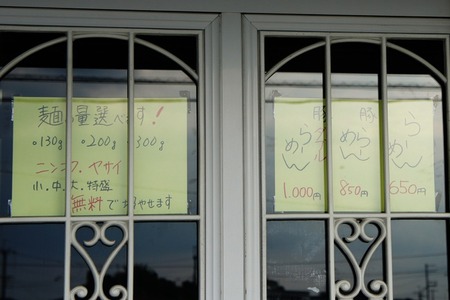 麺の量選べます!
○130g ○200g ○300g
ニンニク、ヤサイ
小、中、大、特盛
無料で増やせます
豚 らーめん
1.000円
豚 らーめん
850円
らーめん
650円